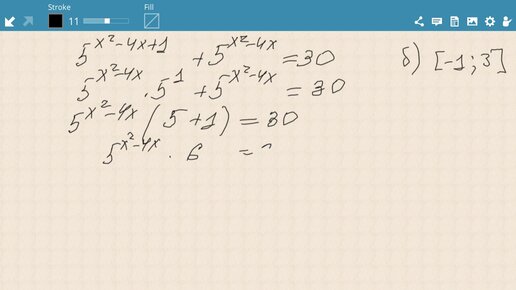 Stroke
11
Fill
5^(x²-4x+1) + 5^(x²-4x) = 30
б) [-1; 3]
5^(x²-4x) · 5^1 + 5^(x²-4x) = 30
5^(x²-4x) (5+1) = 30
5^(x²-4x) · 6 =